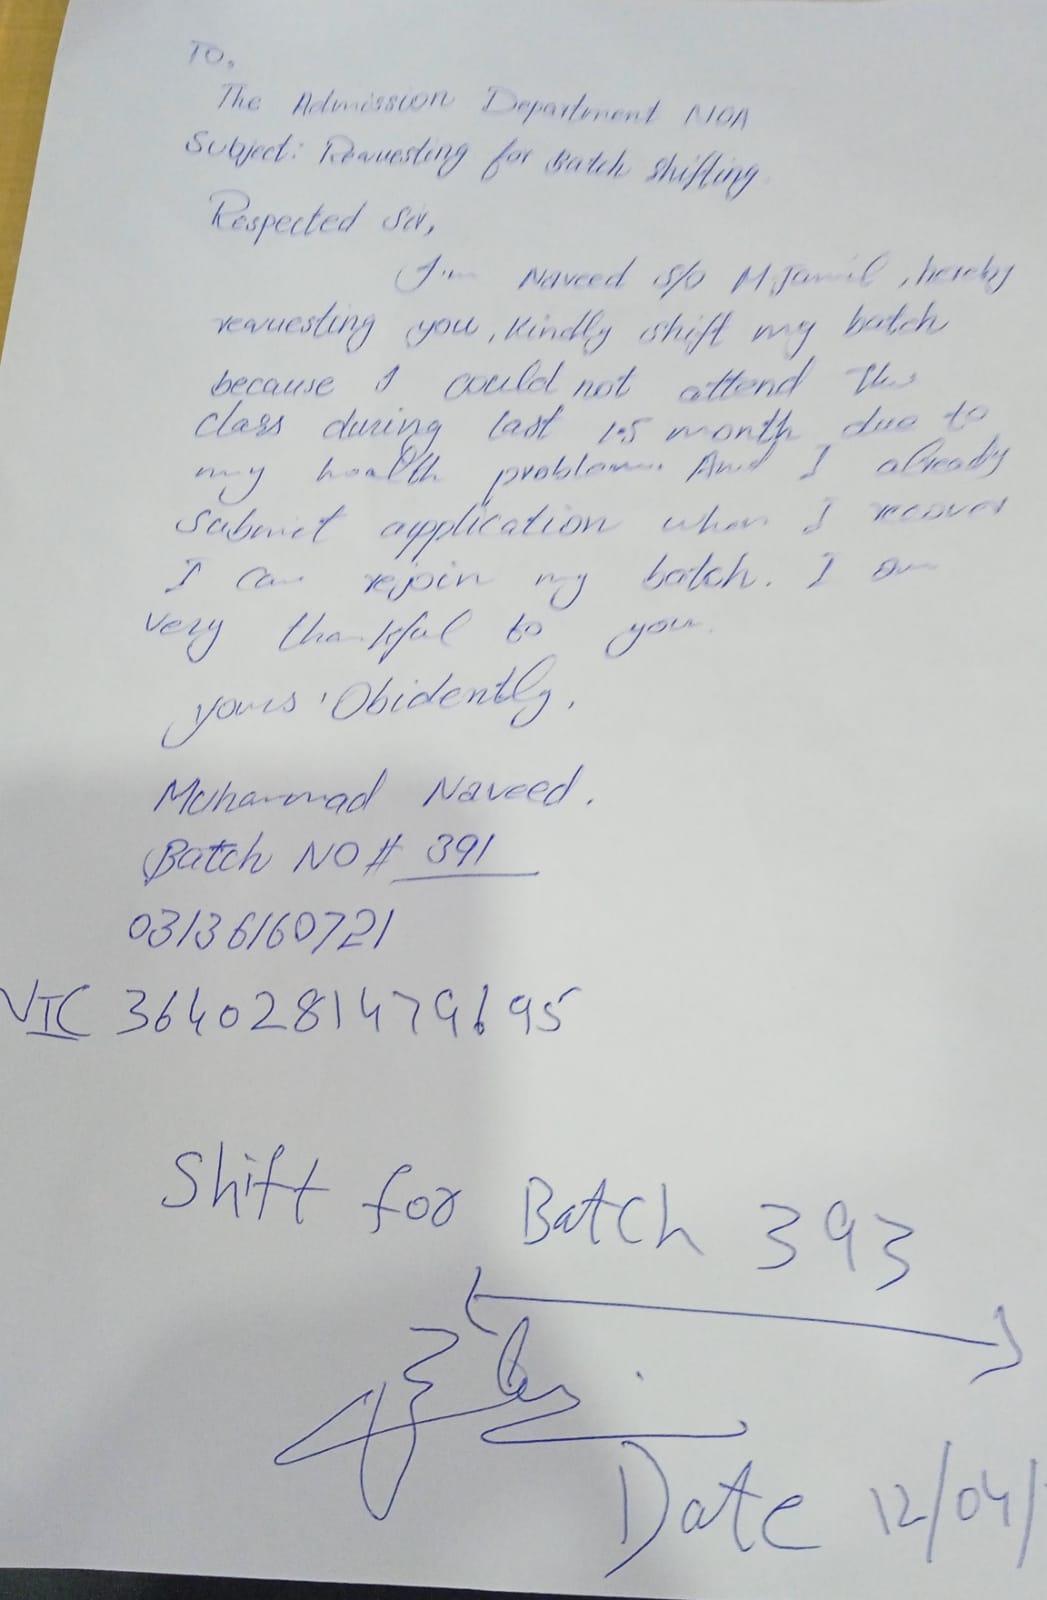 To,
The Admission Department NOA
Subject: Requesting for Batch shifting.
Respected Sir,
I'm Naveed S/o M.Jamil, hereby
requesting you, Kindly shift my batch
because I could not attend the
class during last 1.5 month due to
my health problem. And I already
Submit application when I recover
I can rejoin my batch. I am
very thankful to you.
yours 'Obidently,
Muhammad Naveed.
Batch NO # 391
03136160721
NIC 3640281479695
Shift for Batch 393
Date 12/04/